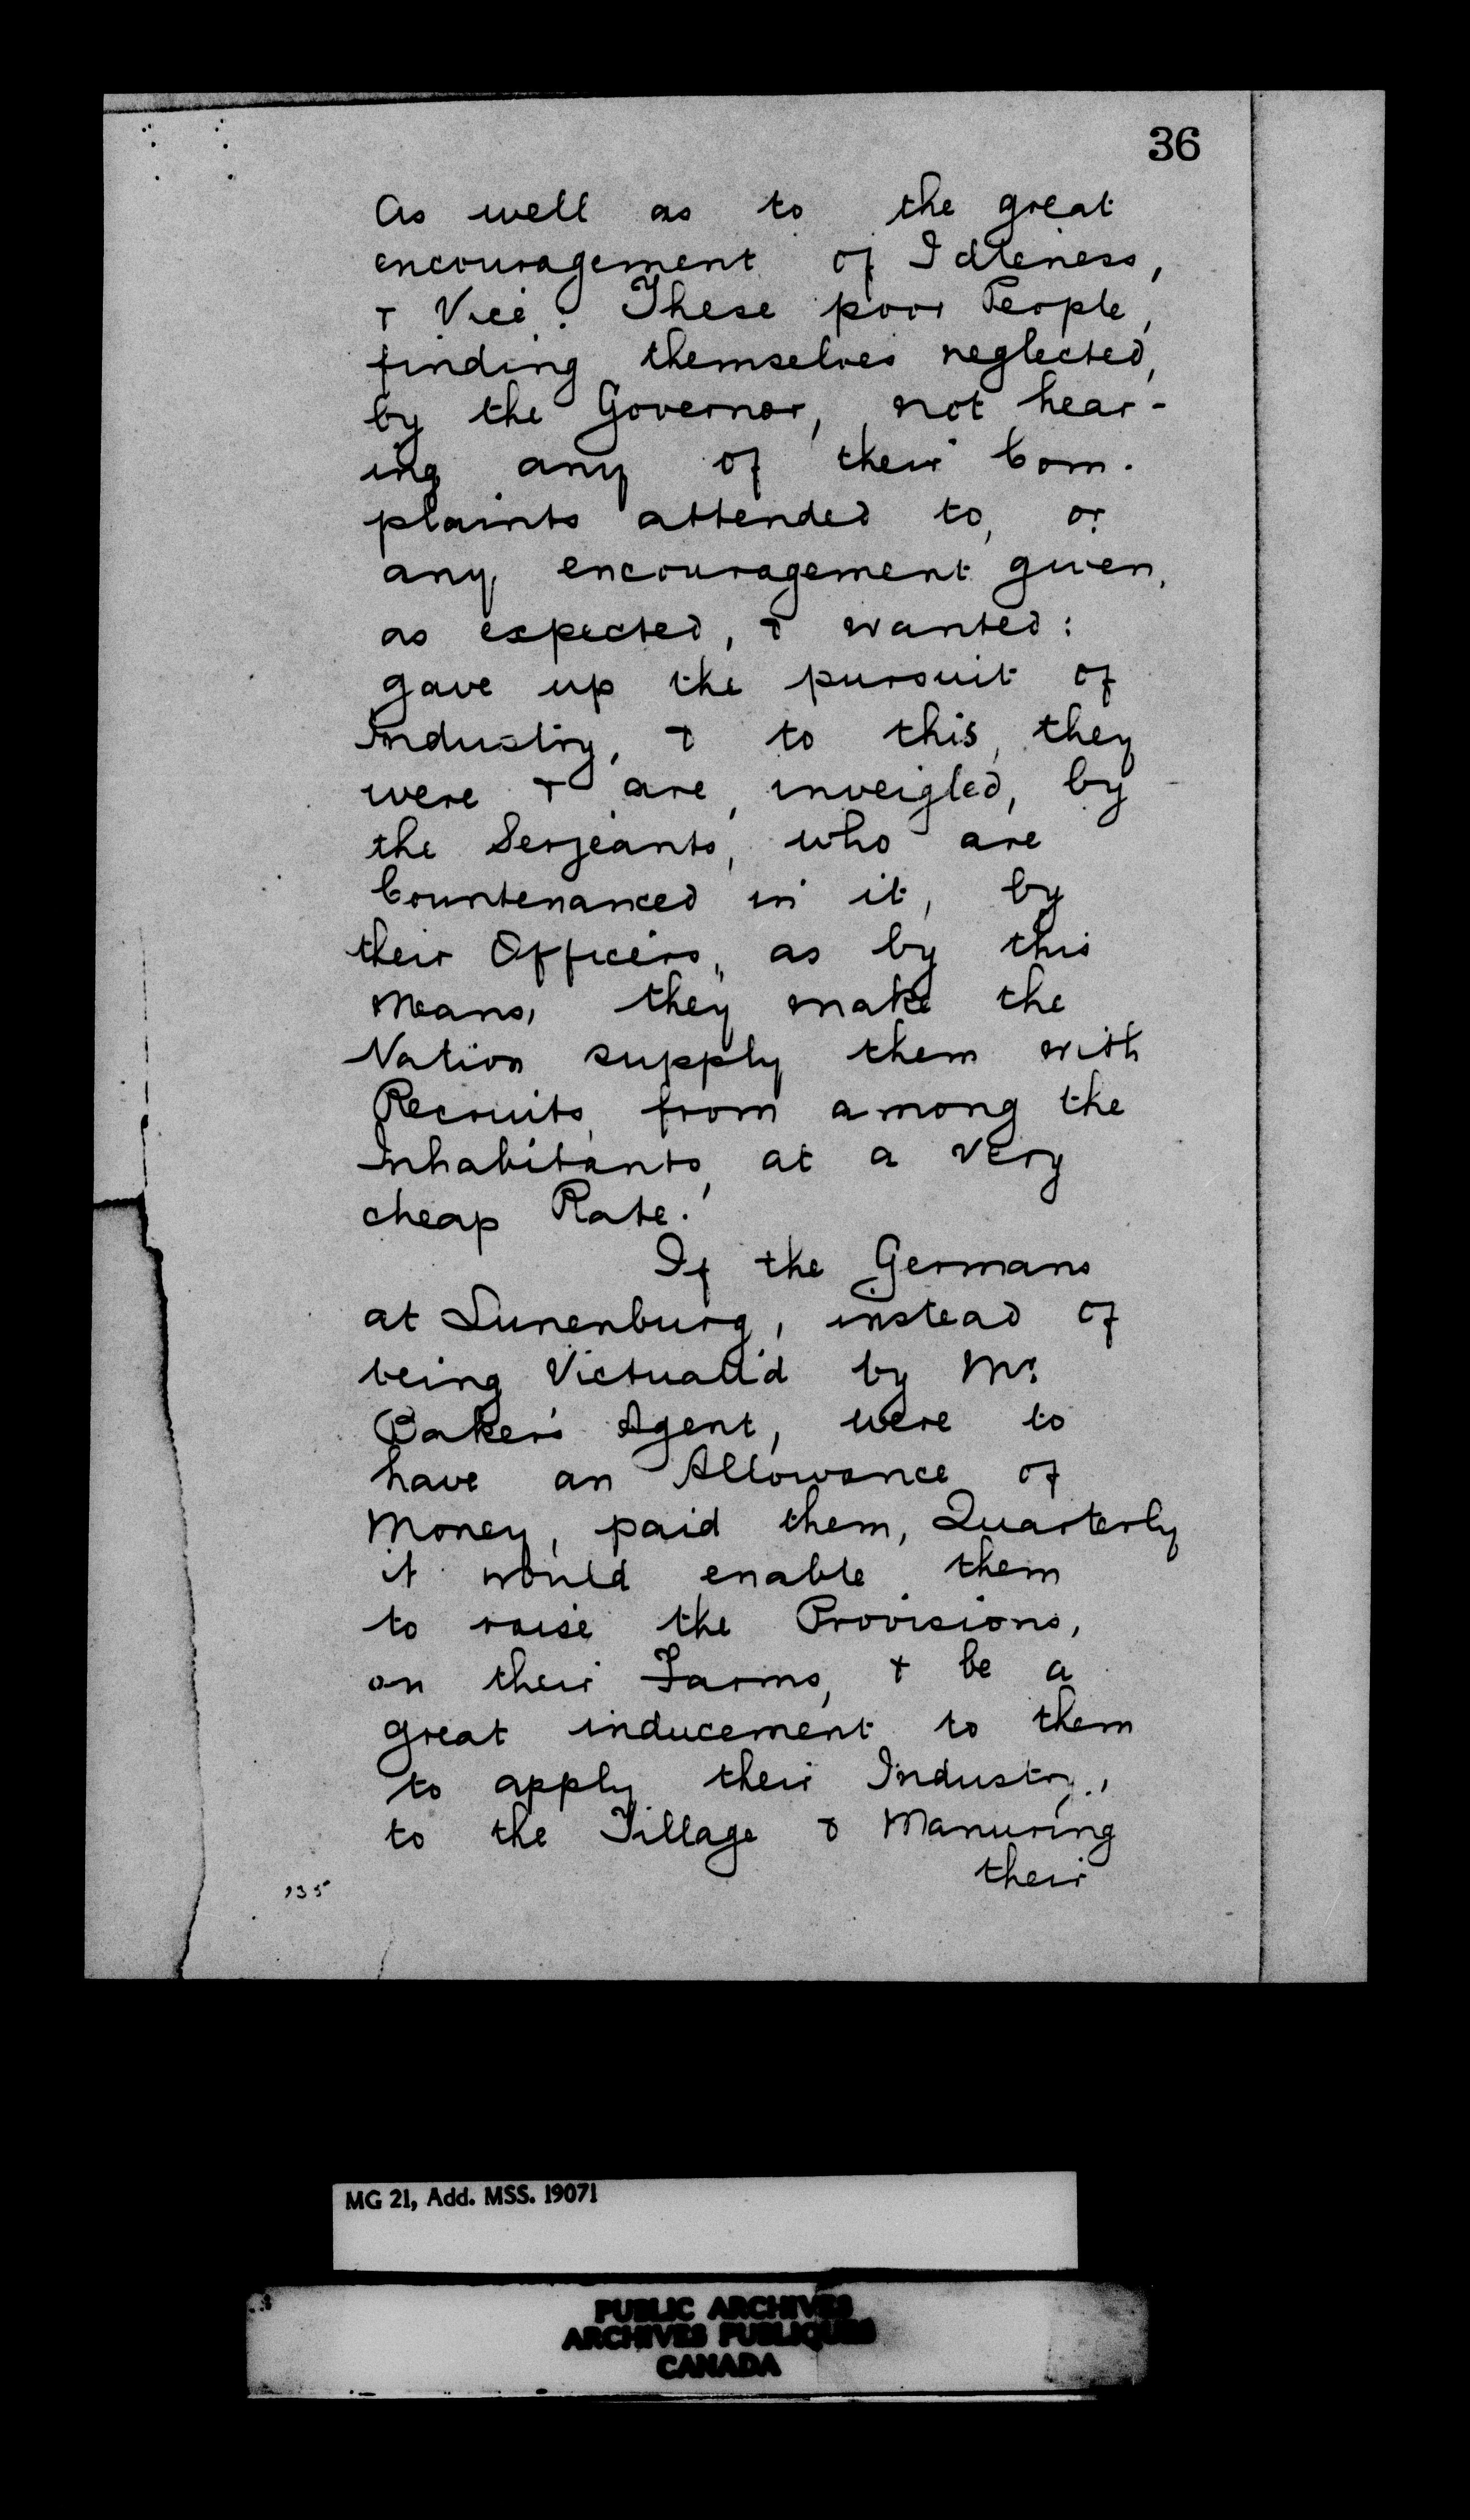 36
As well as to the great
encouragement of Idleness,
& Vice. These poor People,
finding themselves neglected,
by the Governor, not hear-
ing any of their Com-
plaints attended to, or
any encouragement given,
as expected, & wanted:
gave up the pursuit of
Industry, & to this, they
were & are, inveigled, by
the Serjeants, who are
Countenanced in it, by
their Officers, as by this
Means, they make the
Nation supply them with
Recruits, from among the
Inhabitants, at a very
cheap Rate.
If the Germans
at Lunenburg, instead of
being Victuall'd by Mr.
Baker's Agent, were to
have an Allowance of
Money, paid them, Quarterly
it would enable them
to raise the Provisions,
on their Farms, & be a
great inducement to them
to apply their Industry,
to the Tillage & Manuring
their
135
MG 21, Add. MSS. 19071
PUBLIC ARCHIVES
ARCHIVES PUBLIQUES
CANADA